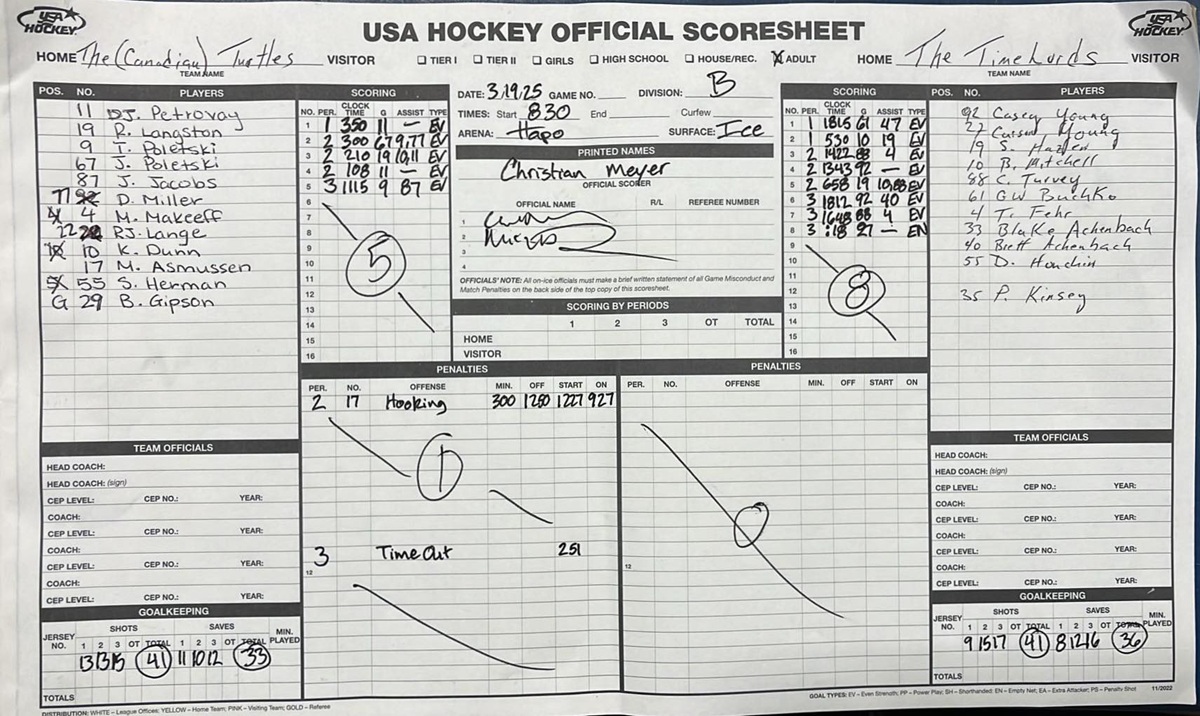 USA HOCKEY
USA HOCKEY OFFICIAL SCORESHEET
USA HOCKEY
HOME The (Canadian) Turtles VISITOR
TEAM NAME
TIER I TIER II GIRLS HIGH SCHOOL HOUSE/REC. X ADULT
HOME The TimeLords VISITOR
TEAM NAME
POS. NO. PLAYERS
11 DJ. Petrovay
19 R. Langston
9 T. Poletski
67 J. Poletski
87 J. Jacobs
77 D. Miller
4 M. Makeeff
22 RJ. Lange
10 K. Dunn
17 M. Asmussen
55 S. Herman
G 29 B. Gipson
SCORING
NO. PER. CLOCK TIME G ASSIST TYPE
1 1 350 11 — EV
2 2 300 67 9,77 EV
3 2 210 19 10,11 EV
4 2 108 11 — EV
5 3 1115 9 87 EV
6
7
8
9
10
11
12
13
14
15
16
5
DATE: 3/19/25 GAME NO. DIVISION: B
TIMES: Start 830 End Curfew
ARENA: Hapo SURFACE: Ice
PRINTED NAMES
Christian Meyer
OFFICIAL SCORER
OFFICIAL NAME R/L REFEREE NUMBER
1
2
3
4
OFFICIALS' NOTE: All on-ice officials must make a brief written statement of all Game Misconduct and
Match Penalties on the back side of the top copy of this scoresheet.
SCORING BY PERIODS
1 2 3 OT TOTAL
HOME
VISITOR
SCORING
NO. PER. CLOCK TIME G ASSIST TYPE
1 1 1815 61 47 EV
2 1 550 10 19 EV
3 2 1422 88 4 EV
4 2 1343 92 — EV
5 2 658 19 10,88 EV
6 3 1812 92 40 EV
7 3 1648 88 4 EV
8 3 :18 27 — EN
9
10
11
12
13
14
15
16
8
POS. NO. PLAYERS
92 Casey Young
27 Carson Young
19 S. Hazlen
10 B. Mitchell
88 C. Turvey
61 GW Buchko
4 T. Fehr
33 Blake Achenbach
40 Brett Achenbach
55 D. Houchin
35 P. Kinsey
PENALTIES
PER. NO. OFFENSE MIN. OFF START ON
2 17 Hooking 300 1250 1227 927
1
3 Time Out 251
12
PENALTIES
PER. NO. OFFENSE MIN. OFF START ON
0
12
TEAM OFFICIALS
HEAD COACH:
HEAD COACH: (sign)
CEP LEVEL: CEP NO.: YEAR:
COACH:
CEP LEVEL: CEP NO.: YEAR:
COACH:
CEP LEVEL: CEP NO.: YEAR:
COACH:
CEP LEVEL: CEP NO.: YEAR:
GOALKEEPING
JERSEY NO. SHOTS SAVES MIN. PLAYED
1 2 3 OT TOTAL 1 2 3 OT TOTAL
13 13 15 41 11 10 12 33
TOTALS
TEAM OFFICIALS
HEAD COACH:
HEAD COACH: (sign)
CEP LEVEL: CEP NO.: YEAR:
COACH:
CEP LEVEL: CEP NO.: YEAR:
COACH:
CEP LEVEL: CEP NO.: YEAR:
COACH:
CEP LEVEL: CEP NO.: YEAR:
GOALKEEPING
JERSEY NO. SHOTS SAVES MIN. PLAYED
1 2 3 OT TOTAL 1 2 3 OT TOTAL
9 15 17 41 8 12 16 36
TOTALS
DISTRIBUTION: WHITE – League Offices; YELLOW – Home Team; PINK – Visiting Team; GOLD – Referee
GOAL TYPES: EV – Even Strength; PP – Power Play; SH – Shorthanded; EN – Empty Net; EA – Extra Attacker; PS – Penalty Shot 11/2022